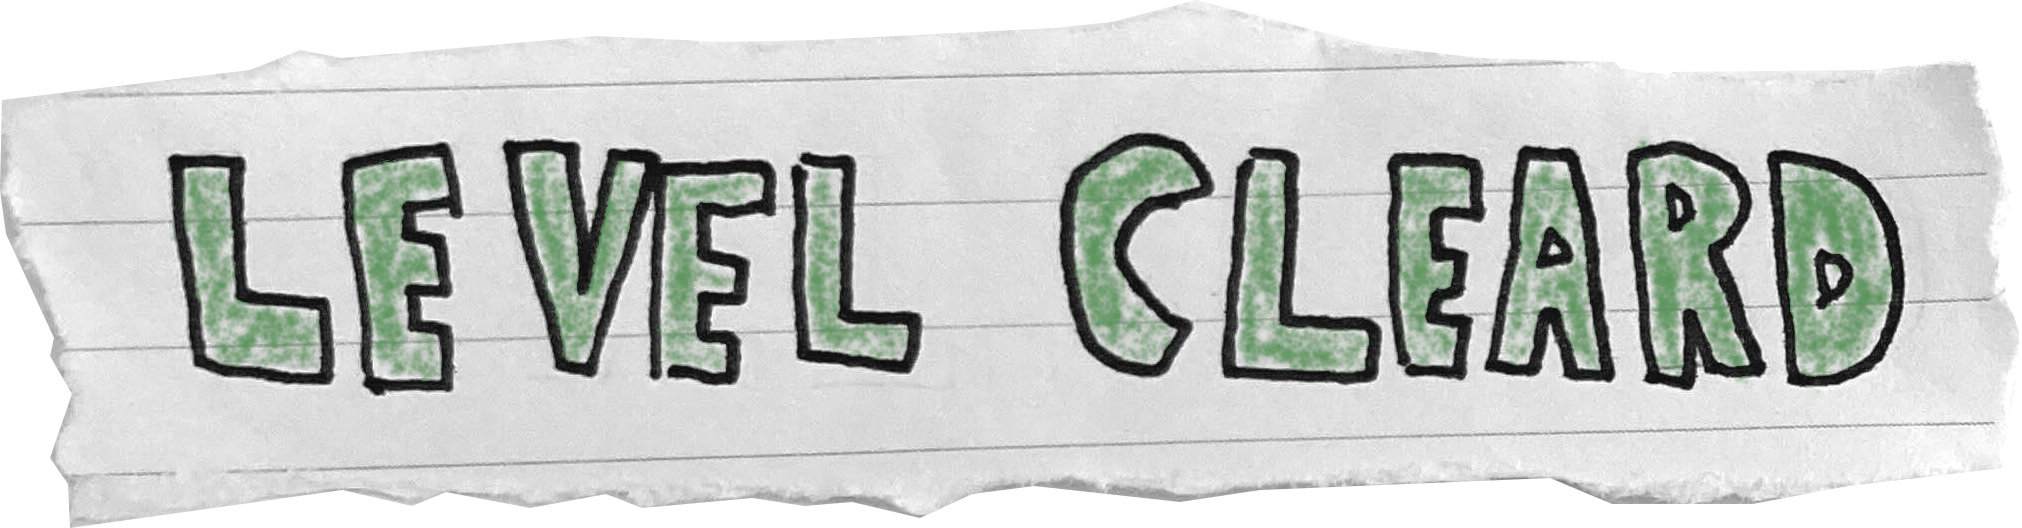 LEVEL CLEARD